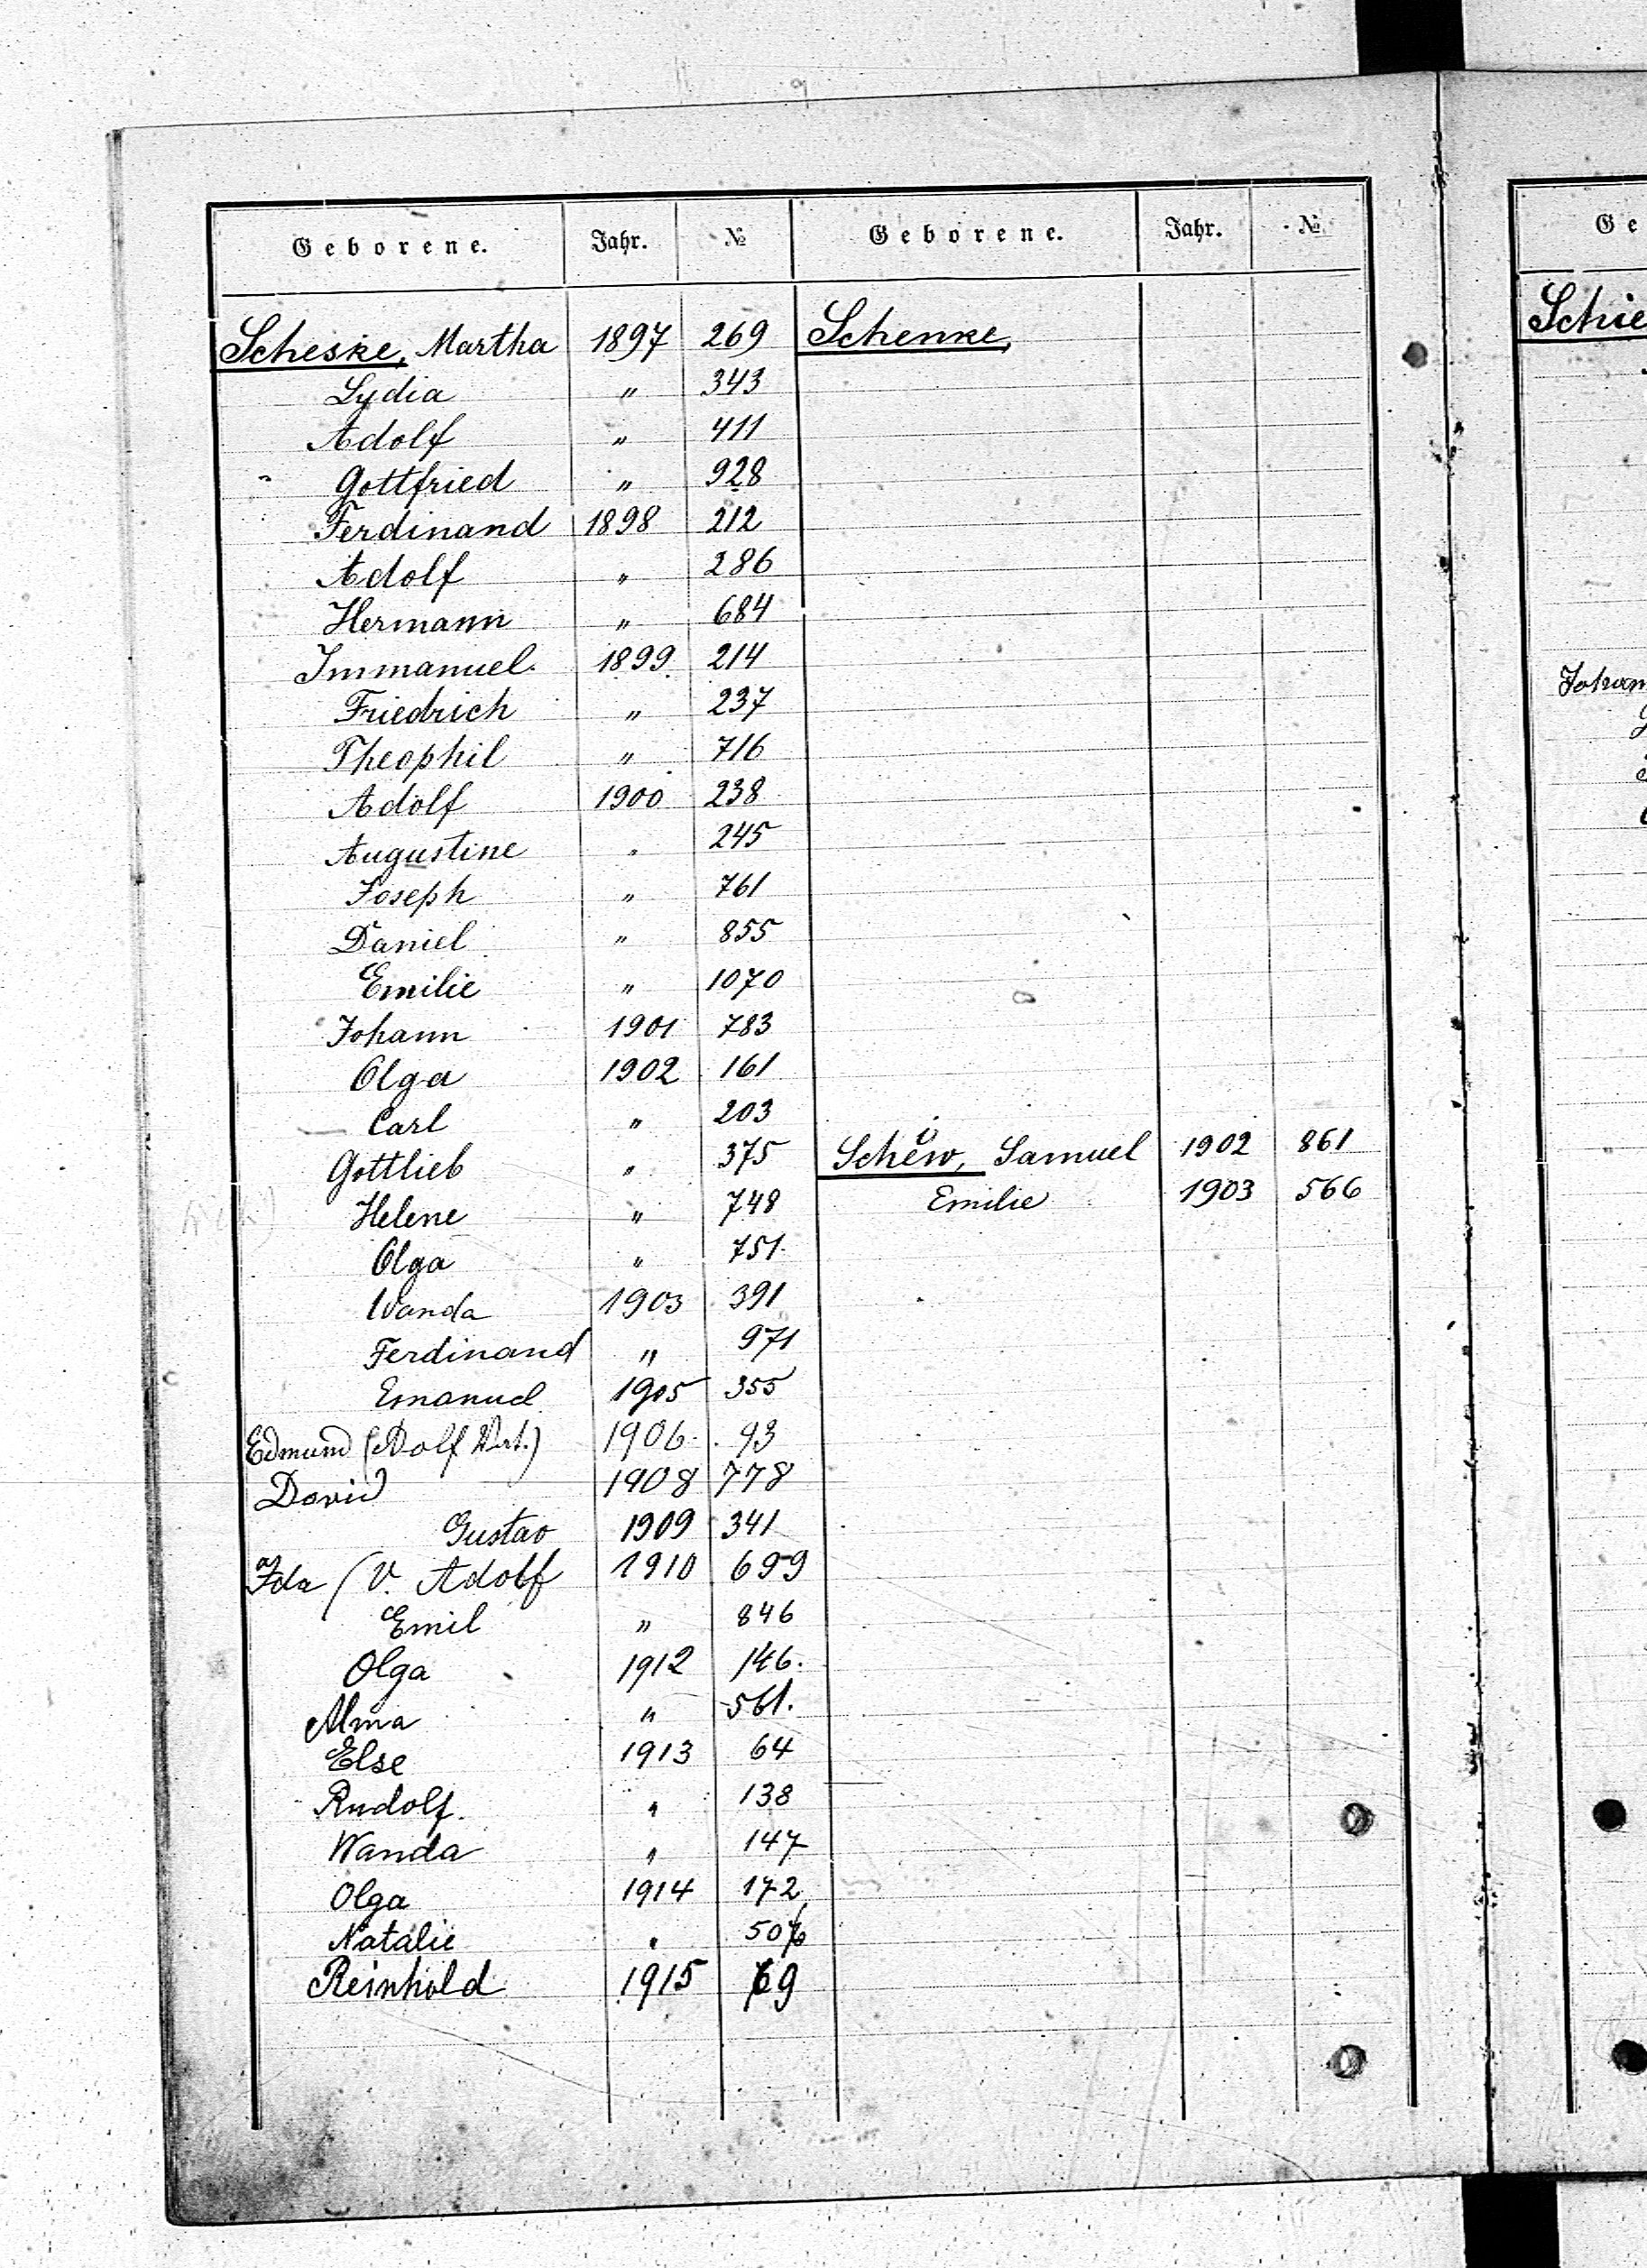 Geborene. Jahr. №
Scheske, Martha 1897 269
Lydia " 343
Adolf " 411
Gottfried " 928
Ferdinand 1898 212
Adolf " 286
Hermann " 684
Immanuel 1899 214
Friedrich " 237
Theophil " 716
Adolf 1900 238
Augustine " 245
Joseph " 761
Daniel " 855
Emilie " 1070
Johann 1901 783
Olga 1902 161
Carl " 203
Gottlieb " 375
Helene " 748
Olga " 751
Wanda 1903 391
Ferdinand " 971
Emanuel 1905 355
Edmund (Adolf 1906 93
David 1908 778
Gustav 1909 341
Ida (V. Adolf 1910 699
Emil " 846
Olga 1912 146.
Alma " 561.
Else 1913 64
Rudolf. " 138
Wanda " 147
Olga 1914 172
Natalie "
Reinhold 1915 69
Geborene. Jahr. №
Schenke,
Schew, Samuel 1902 861
Emilie 1903 566
Ge
Schie
Johan